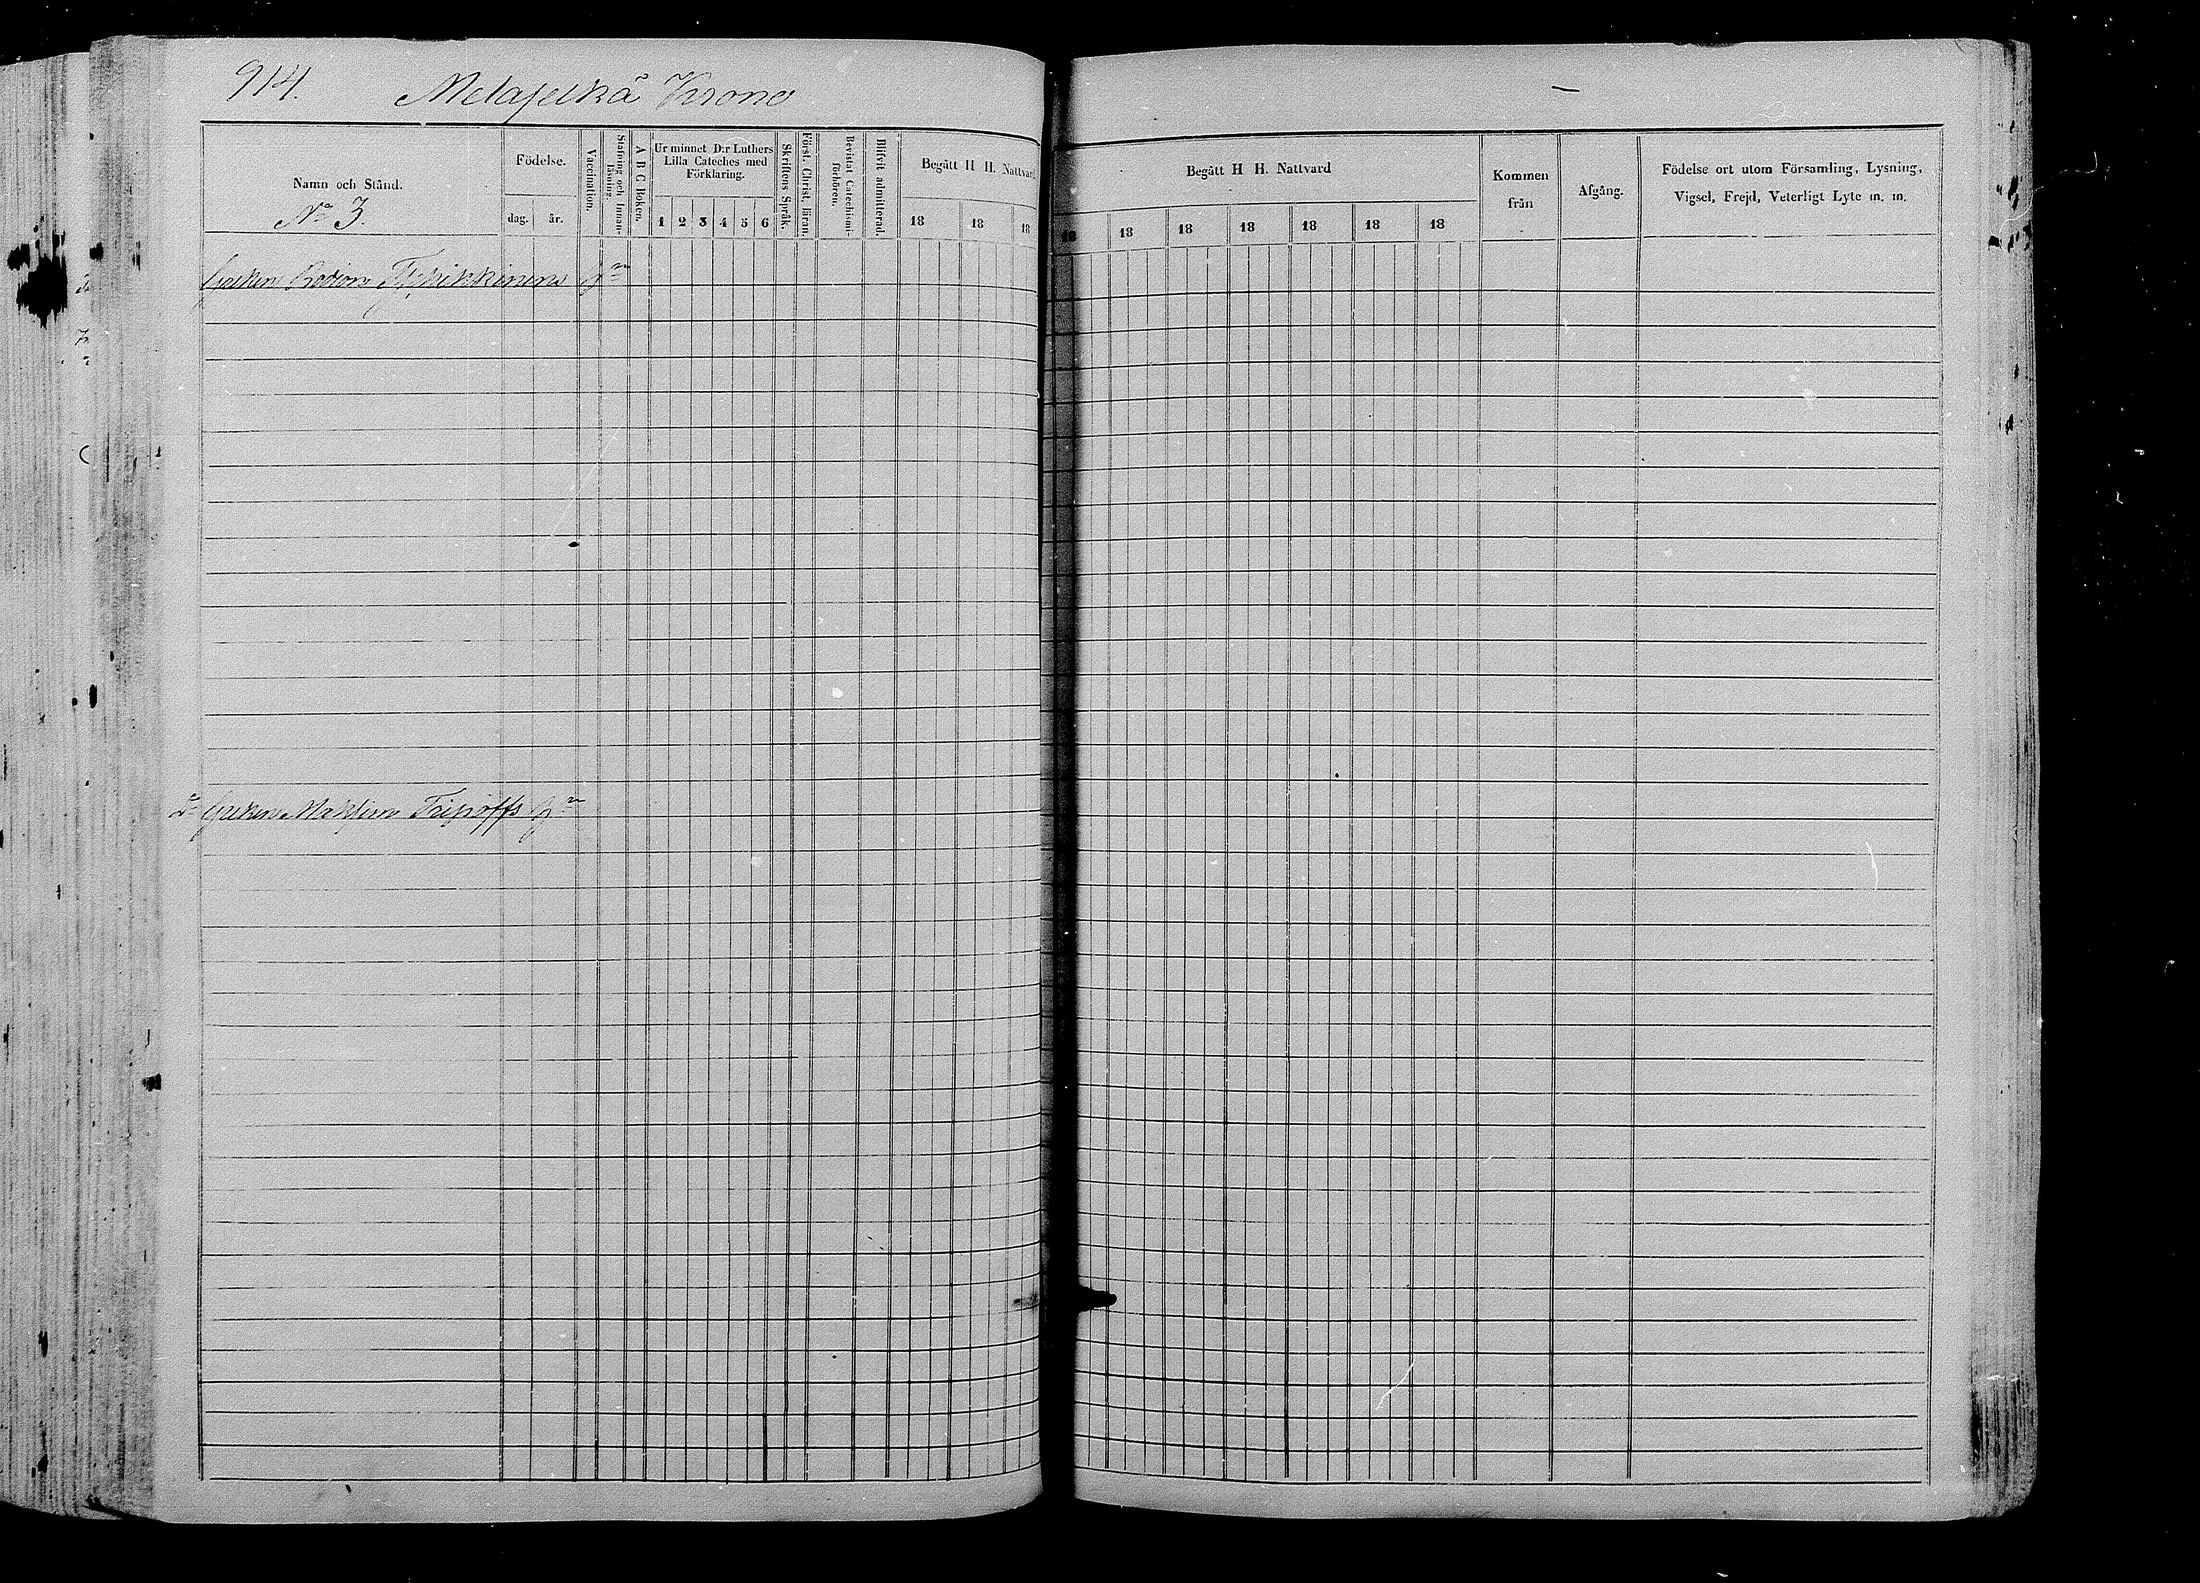 914. Metaselkä Krono
Namn och Stånd.
No 3.
Födelse.
dag. år.
Vaccination.
Stafning och Innan-läsning
A B C Boken.
Ur minnet D:r Luthers
Lilla Cateches med
Förklaring.
1 2 3 4 5 6
Skriftens Språk.
Först. Christ. läran.
Bevistat Catechismi-
förhören.
Blifvit admitterad.
Begått H H. Nattvard
18 18 18
Begått H H. Nattvard
18 18 18 18 18 18 18
Kommen
från
Afgång.
Födelse ort utom Församling, Lysning,
Vigsel, Frejd, Veterligt Lyte m. m.
Greken Rodion
Greken